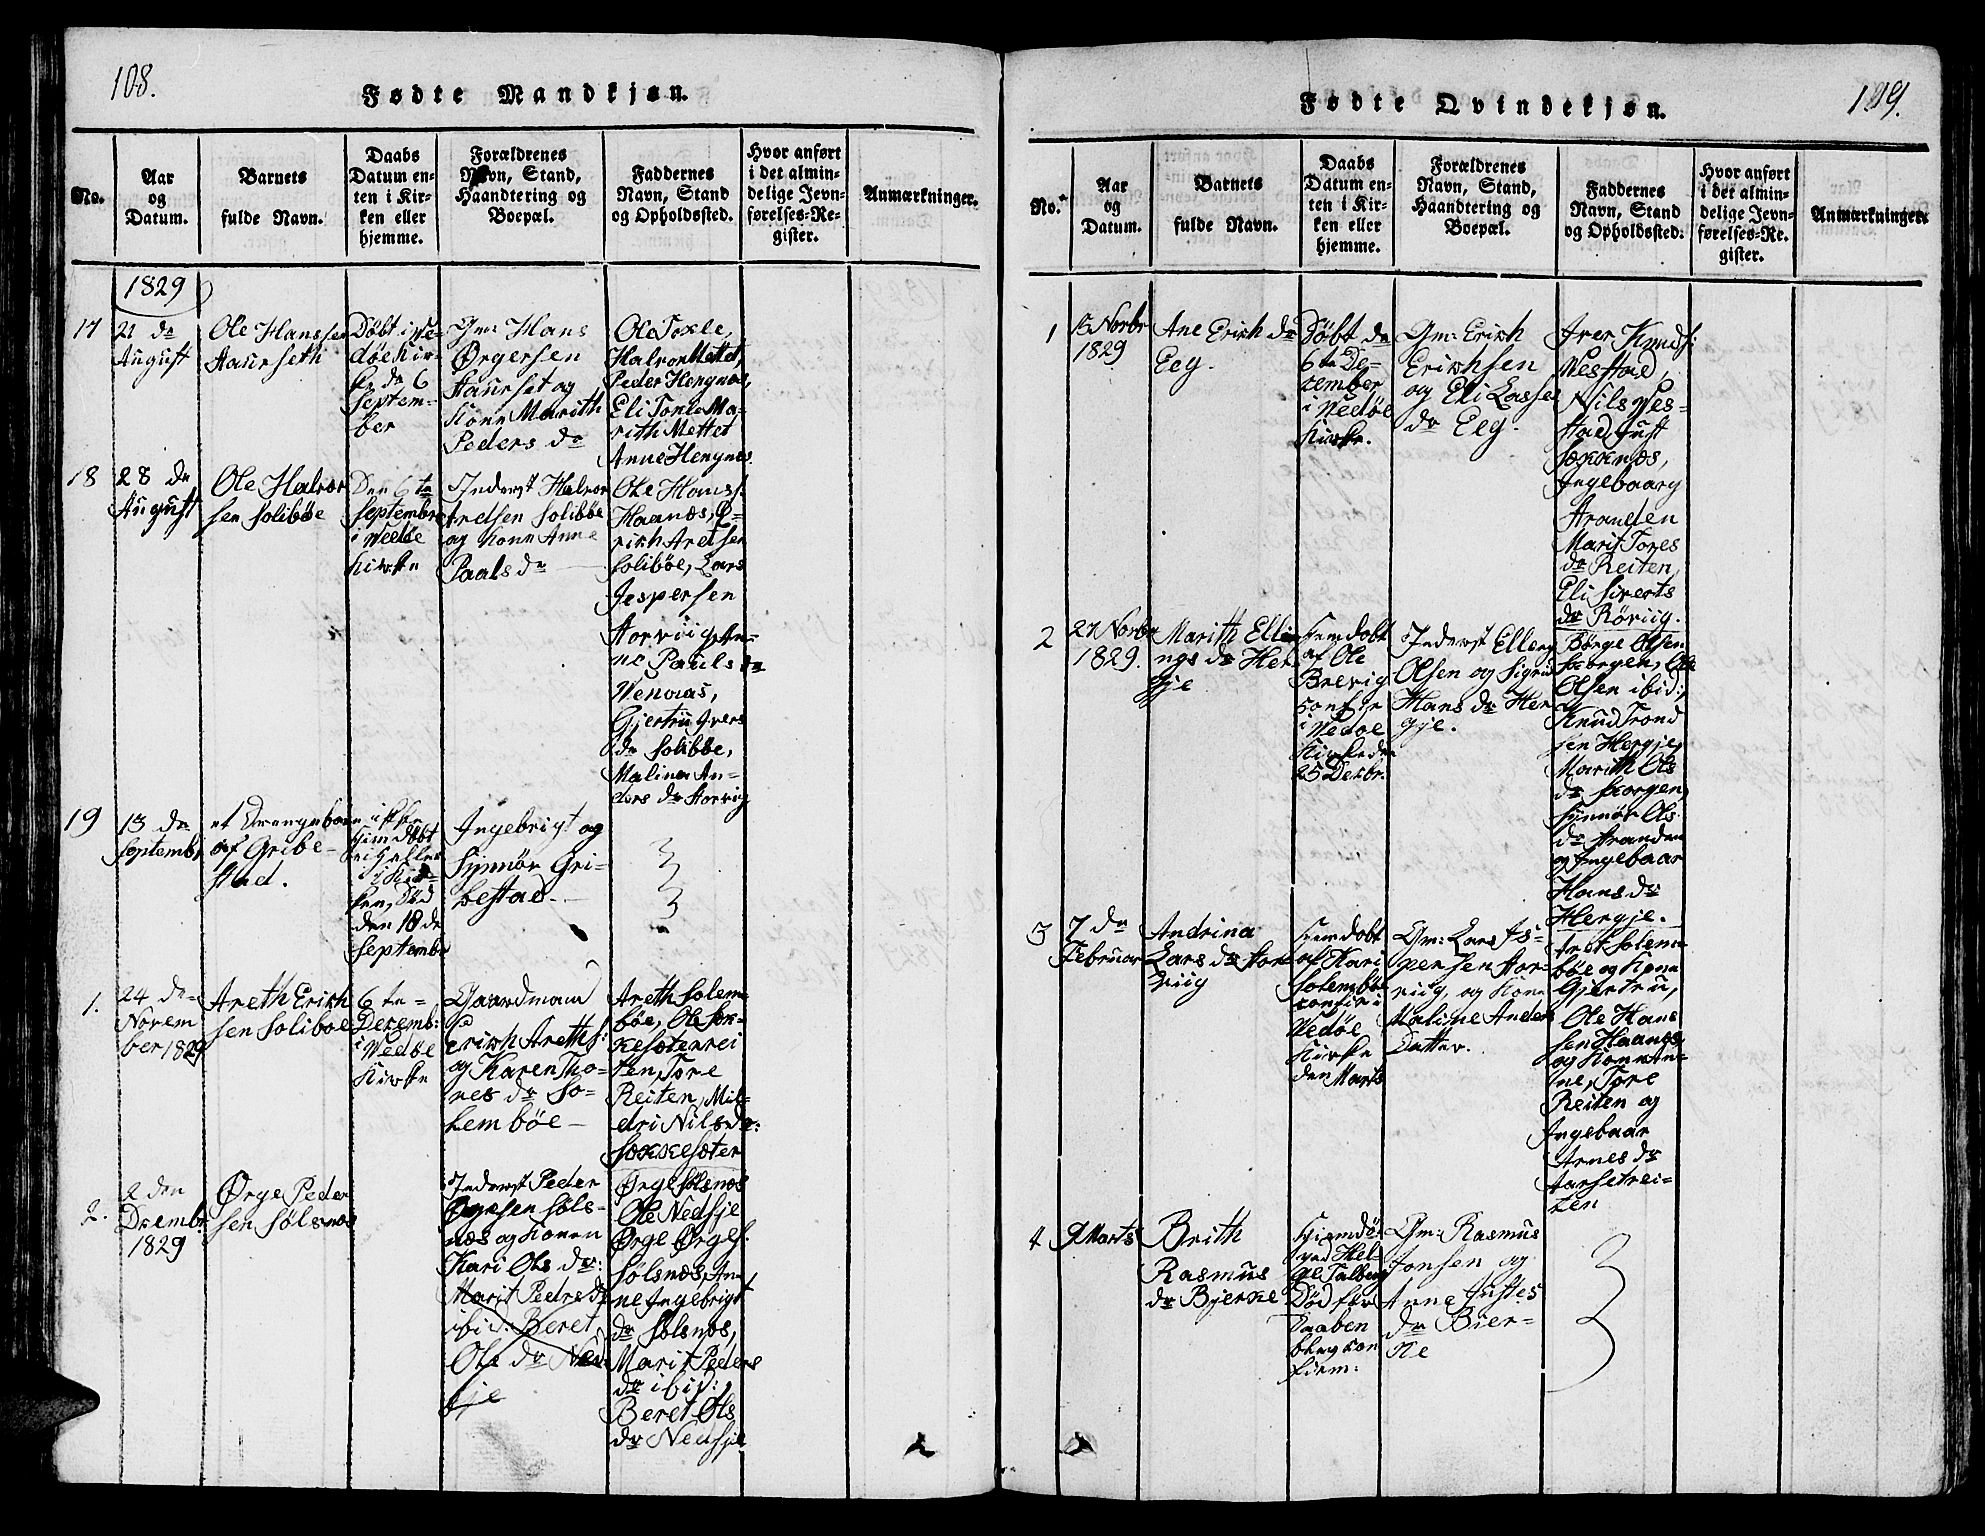 108.
Fødte Mandkjøn.
No.
Aar
og
Datum.
Barnets
fulde Navn.
Daabs
Datum en-
ten i Kir-
ken eller
hjemme.
Forældrenes
Navn, Stand,
Haandtering og
Boepæl.
Faddernes
Navn, Stand
og Opholdssted.
Hvor anført
i det almin-
delige Jevn-
førelses-Re-
gister.
Anmærkninger.
1829
17
21 de
August
Ole Hanssen
Haurseth
Døbt i Ve-
døe Kir-
ke de 6
Septem-
ber
Gm: Hans
Ørgersen
Haurset og
Kone Marith
Peders dr
Ole Toxle,
Halvor Mettet,
Peder Hengnæs,
Eli Toxle Ma-
rith Mettet
Anne Hengnes.
18
28 de
August
Ole Halvor
sen Solibøe
Den 6 te
Septembr
i Vedøe
Kirke
Inderst Halvor
Aretsen Solibøe
og Kone Anne
Paals dr
Ole Hanss:
Haanæs, E-
rikh Aretsen
Solibøe, Lars
Jespersen
Horviig, An-
ne Pauls dr
Venaas,
Gjertru Ivers
dr Solibøe,
Malina An-
ders dr Horvig
19
13 de
Septembr
et Drengebarn
af Gribe-
stad.
hiemdøbt
ei heller
i Kir-
ken, Død
den 18 de
Septembr
Ingebrigt og
Synnør Gri-
bestad.
1.
24 de
Novem
ber 1829
Areth Erikh
sen Soliboe
6 te
Decemb:
i Vedøe
Kirke
Gaardmand
Erikh Areths:
og Karen Tho-
nes dr So-
lembøe
Areth Solem-
bøe, Ole Sok-
kesæterrei
ten, Tore
Reiten, Mil-
dri Nils dr:
Sokkesæter
2.
2 den
Decembr
1829
Ørge Peder
sen Sølsnæs
Inderst Peder
Ørgesen Søls-
næs og Konen
Kari Ols dr:
Marit Peders dr
ibid: Beret
Ole dr Ned-
sje
Ørge Sølsnæs
Ole Nedsje
Ørge Ørges.
Sølsnæs, An-
ne Ingebrigt
dr Sølsnæs,
Marit Peders
dr ibid:,
Beret Ols
dr Nedsje
109.
Fødte Qvindekjøn.
No.
Aar
og
Datum.
Barnets
fulde Navn.
Daabs
Datum en-
ten i Kir-
ken eller
hjemme.
Forældrenes
Navn, Stand,
Haandtering og
Boepæl.
Faddernes
Navn, Stand
og Opholdssted.
Hvor anført
i det almin-
delige Jevn-
førelses-Re-
gister.
Anmærkninger.
1
13 Novbr
1829
Ane Erikh dr
Eeg.
Døbt de
6te De-
cember
i Vedøe
Kirke.
Gm: Erikh
Erikhsen
og Eli Lasses
dr Eeg.
Iver Knuds:
Nesstad,
Nils Nes-
stad, Just
Sæxnæs,
Ingebaarg
Stranden
Marit Tores
dr Reiten,
Eli Siverts
dr Rørviig.
2
27 Novbr
1829.
Marith Ellin
ngs dr Her
gje
Hiemdøbt
af Ole
Brevig
Confir
i Vedoe
Kirke den
25 Decbr.
Inderst Elleng
Olsen og Sigrid
Hans dr Her
gje.
Børge Olsen
Skorgen, Ole
Olsen ibid:,
Knud Trond
sen Hergje,
Marith Ols
dr Skorgen,
Synnør Ols
dr Stranden
og Ingebaar
Hans dr
Hergje.
3
7 de
Februar
Andrina
Lars dr Hor
viig
Hiemdøbt
af Kari
Solembøe
confir i
Vedøe
Kirke
den Marts
Gm: Lars Js-
persen Hor-
viig, og Kone
Maline Anders
Datter.
Aret Solem-
bøe og Kone
Gjertru,
Ole Hans
sen Haanæs
og Kone An-
ne, Tore
Reiten og
Ingebaar
Arnes dr
Aarsetrei-
ten
4
9 Marts
Brith
Rasmus
dr Bjerke
Hiemdøbt
ved Hel-
ge Talberg
Død før
Daaben
blev con
firm:
Gm: Rasmus
Jonsen og
Anne Justes
dr Bier-
ke